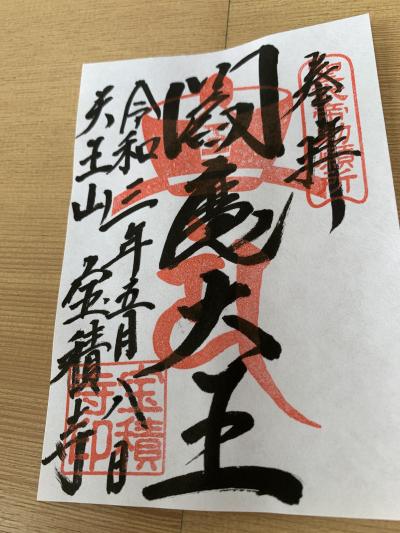 奉拝
閻魔大王
令和三年五月八日
天王山 宝積寺
宝積
寺印